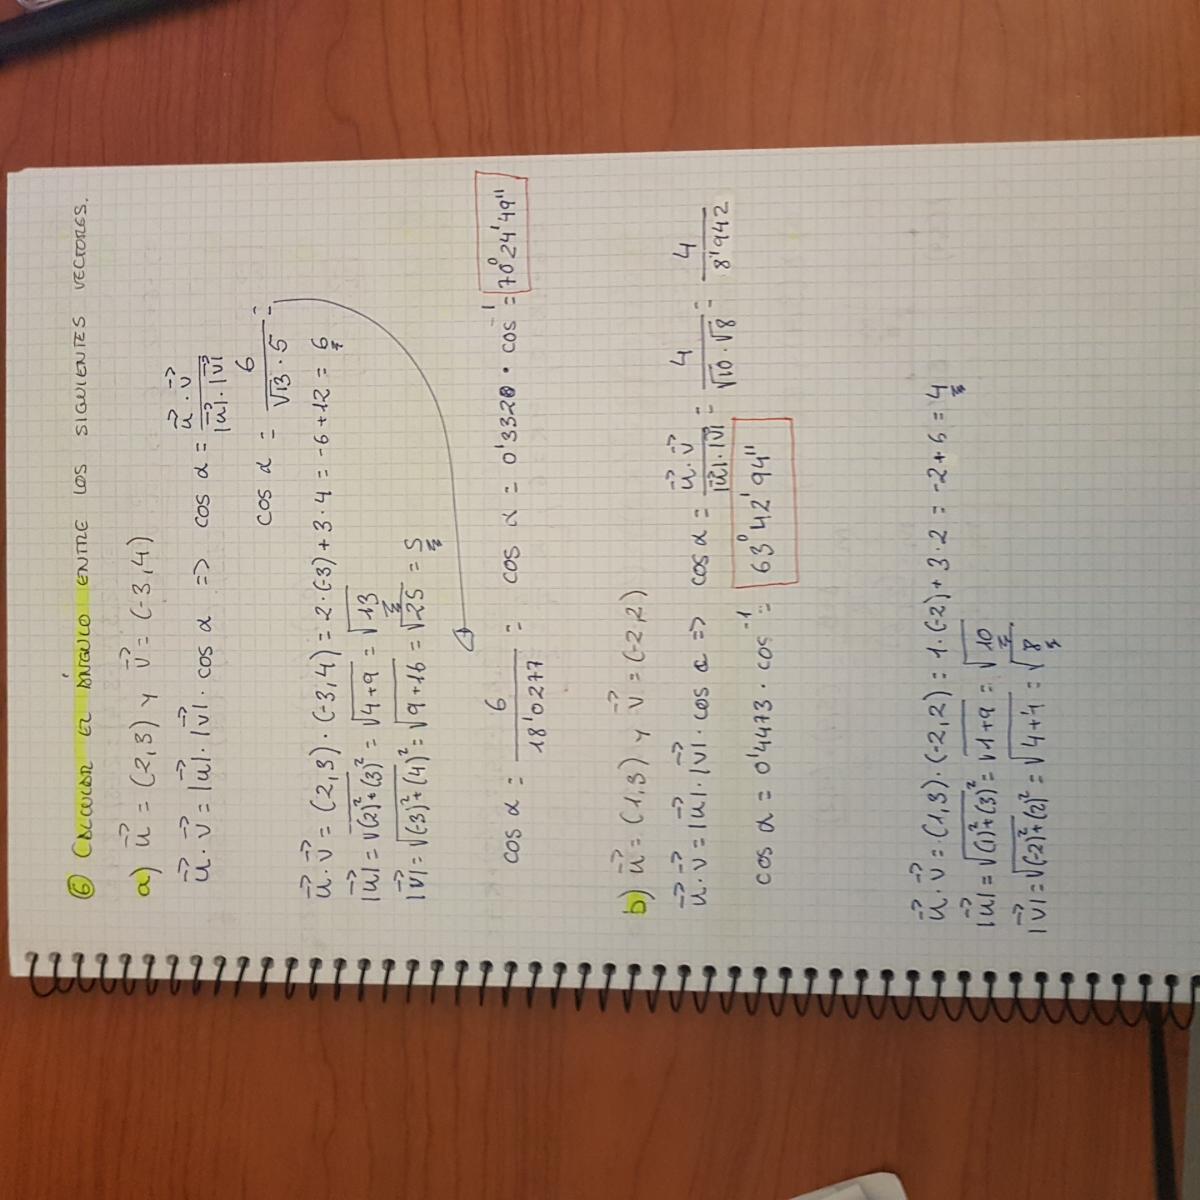 ⑥ CALCULAR EL ÁNGULO ENTRE LOS SIGUIENTES VECTORES.
a) u⃗ = (2,3) y v⃗ = (-3,4)
u⃗ · v⃗ = |u⃗| · |v⃗| · cos α => cos α = u⃗ · v⃗ / |u⃗| · |v⃗|
cos α = 6 / √13 · 5 =
u⃗ · v⃗ = (2,3) · (-3,4) = 2 · (-3) + 3 · 4 = -6 + 12 = 6
|u⃗| = √(2)² + (3)² = √4+9 = √13
|v⃗| = √(-3)² + (4)² = √9+16 = √25 = 5
cos α = 6 / 18'0277 = cos α = 0'3328 · cos⁻¹ = 70° 24' 49''
b) u⃗ = (1,3) y v⃗ = (-2,2)
u⃗ · v⃗ = |u⃗| · |v⃗| · cos α => cos α = u⃗ · v⃗ / |u⃗| · |v⃗| = 4 / √10 · √8 = 4 / 8'942
cos α = 0'4473 · cos⁻¹ = 63° 42' 94''
u⃗ · v⃗ = (1,3) · (-2,2) = 1 · (-2) + 3 · 2 = -2 + 6 = 4
|u⃗| = √(1)² + (3)² = √1+9 = √10
|v⃗| = √(-2)² + (2)² = √4+4 = √8